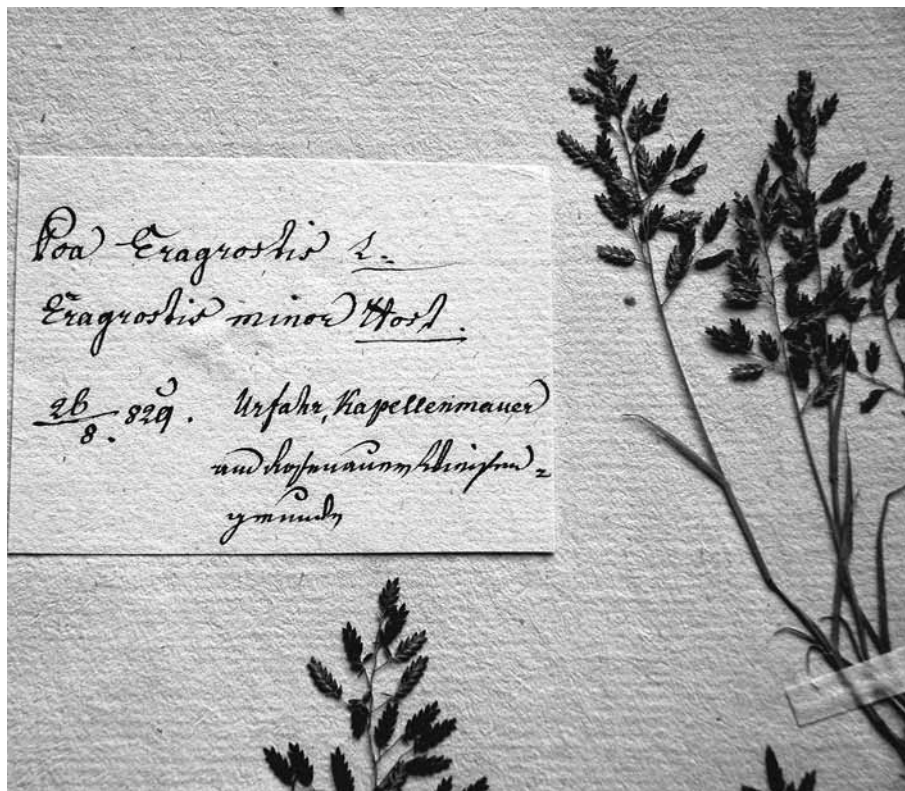 Poa Eragrostis L.
Eragrostis minor Host.
26/8. 829. Urfahr, Kapellenmauer
am